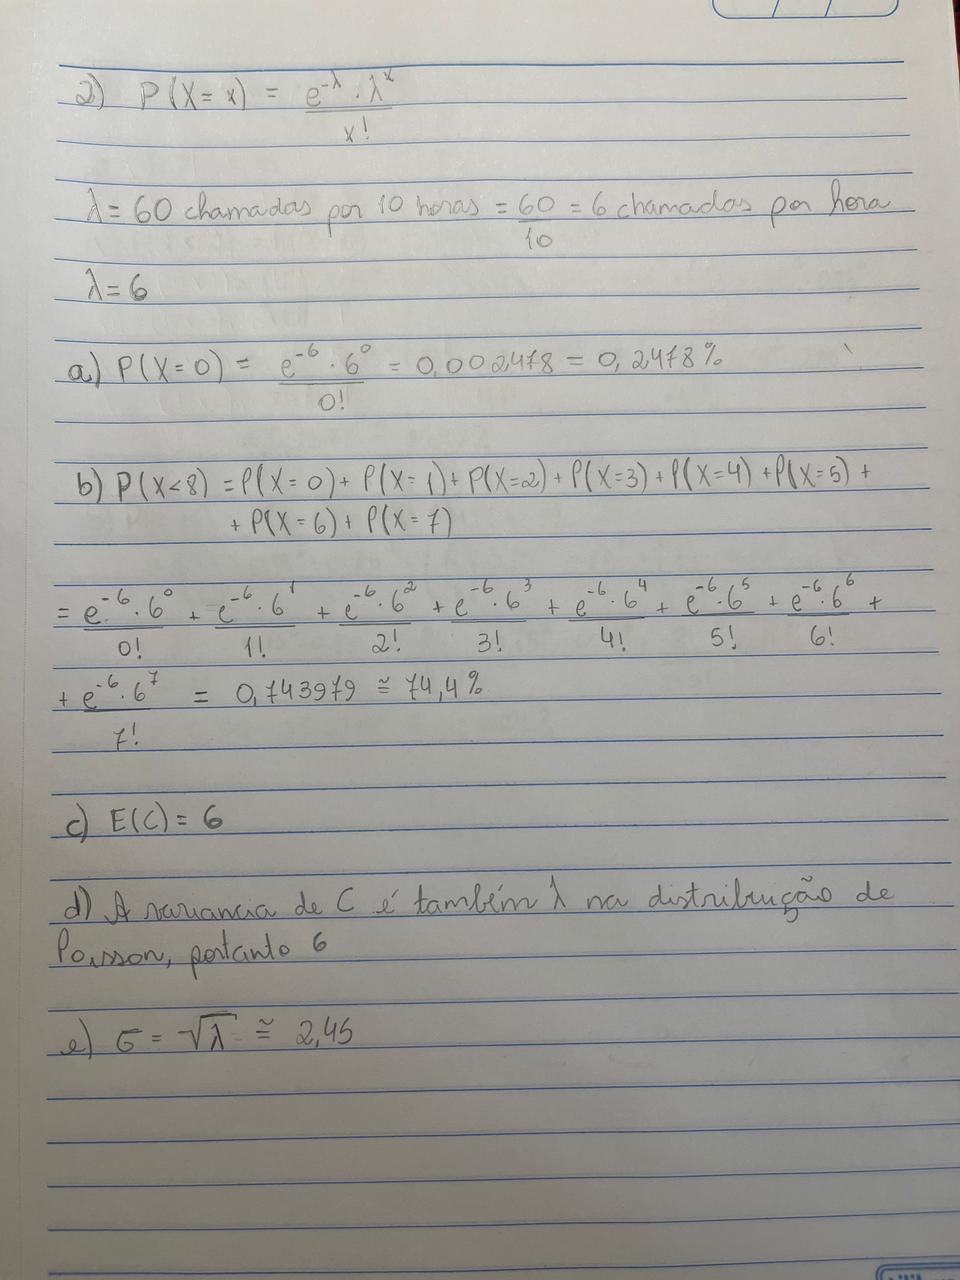 2) P(X = x) = e^-λ . λ^x / x!
λ = 60 chamadas por 10 horas = 60/10 = 6 chamadas por hora
λ = 6
a) P(X = 0) = e^-6 . 6^0 / 0! = 0,002478 = 0,2478%
b) P(X < 8) = P(X = 0) + P(X = 1) + P(X = 2) + P(X = 3) + P(X = 4) + P(X = 5) +
+ P(X = 6) + P(X = 7)
= e^-6 . 6^0 / 0! + e^-6 . 6^1 / 1! + e^-6 . 6^2 / 2! + e^-6 . 6^3 / 3! + e^-6 . 6^4 / 4! + e^-6 . 6^5 / 5! + e^-6 . 6^6 / 6! +
+ e^-6 . 6^7 / 7! = 0,743979 ≅ 74,4%
c) E(C) = 6
d) A variancia de C é também λ na distribuição de
Poisson, portanto 6
e) σ = √λ ≅ 2,45